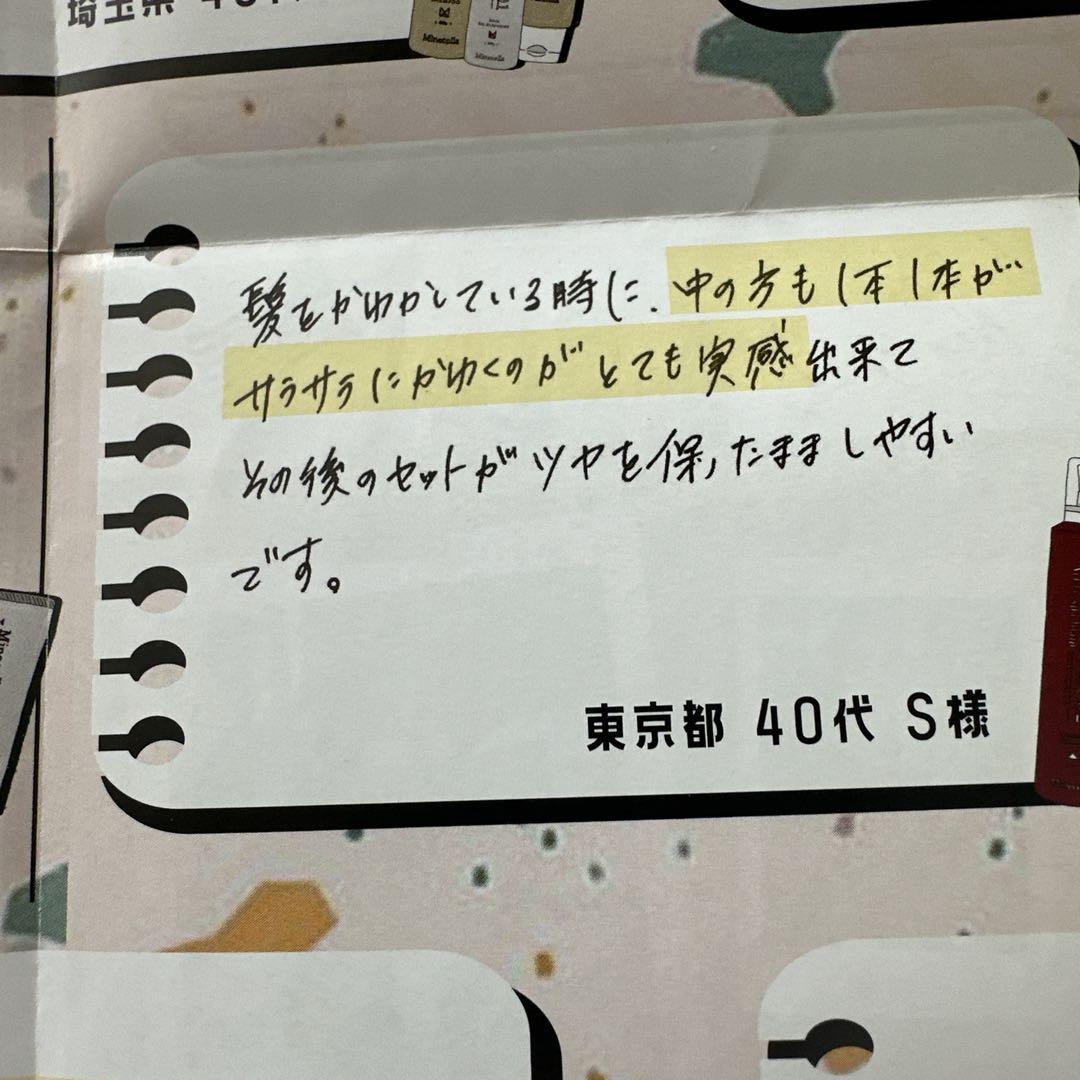 埼玉県 40代
Minecolla
Minecolla
髪をかわかしている時に、中の方も1本1本が
サラサラにかわくのがとても実感出来て
その後のセットがツヤを保ったままましやすい
です。
東京都 40代 S様